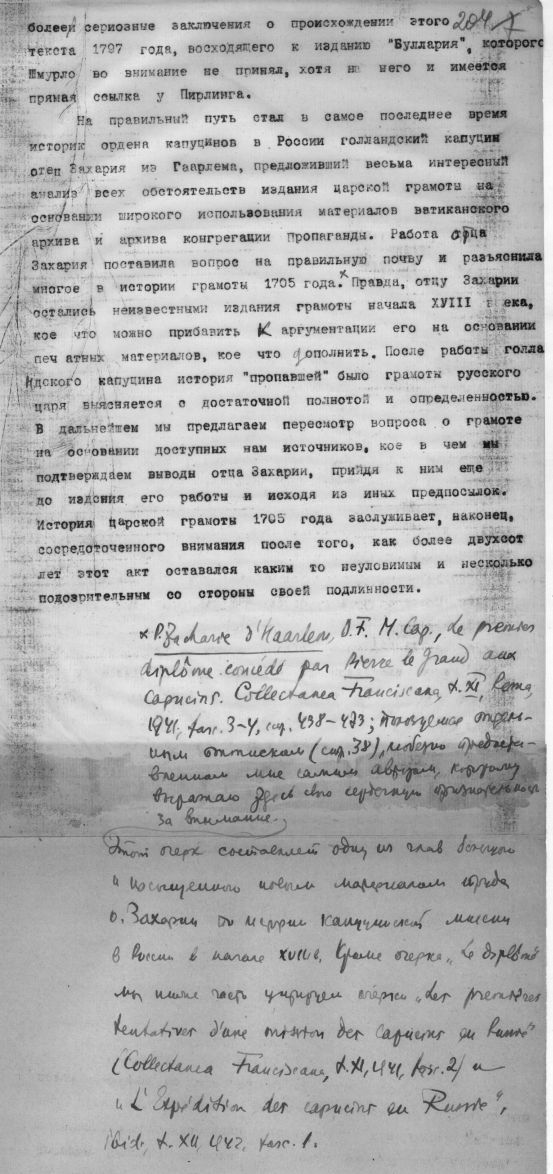 204
болееи сериозные заключения о происхождении этого
текста 1797 года, восходящего к изданию "Буллария", которого
Шмурло во внимание не принял, хотя на него и имеется
прямая ссылка у Пирлинга.
На правильный путь стал в самое последнее время
историк ордена капуцинов в России голландский капуцин
отец Захария из Гаарлема, предложивший весьма интересный
анализ всех обстоятельств издания царской грамоты на
основании широкого использования материалов ватиканского
архива и архива конгрегации Пропаганды. Работа отца
Захария поставила вопрос на правильную почву и разъяснила
многое в истории грамоты 1705 года.× Правда, отцу Захарии
остались неизвестными издания грамоты начала XVIII века,
кое что можно прибавить к аргументации его на основании
печатных материалов, кое что дополнить. После работы голла
ндского капуцина история "пропавшей" было грамоты русского
царя выясняется с достаточной полнотой и определенностью.
В дальнейшем мы предлагаем пересмотр вопроса о грамоте
на основании доступных нам источников, кое в чем мы
подтверждаем выводы отца Захарии, прийдя к ним еще
до издения его работы и исходя из иных предпосылок.
История царской грамоты 1705 года заслуживает, наконец,
сосредоточенного внимания после того, как более двухсот
лет этот акт оставался каким то неуловимым и несколько
подозрительным со стороны своей подлинности.
× P. Zacharie d'Haarlem, O.F.M. Cap., Le premier
diplôme concédé par Pierre le Grand aux
capucins. Collectanea Franciscana, t. XI, Roma,
1941, fasc. 3-4, стр. 438-473; пользуемся отдель-
ным оттиском (стр. 38), любезно предостав-
вленным мне самим автором, которому
выражаю здесь свою сердечную признательность
за внимание.
Этот очерк составляет одну из глав большого
и насыщенного новым материалом труда
о. Захарии по истории капуцинской миссии
в России в начале XVIII в. Кроме очерка „Le diplôme"
мы ниже часто цитируем очерки „Les premières
tentatives d'une mission des capucins en Russie"
(Collectanea Franciscana, t. XI, 1941, fasc. 2) и
„L'Expédition des capucins en Russie",
ibid., t. XII, 1942, fasc. 1.